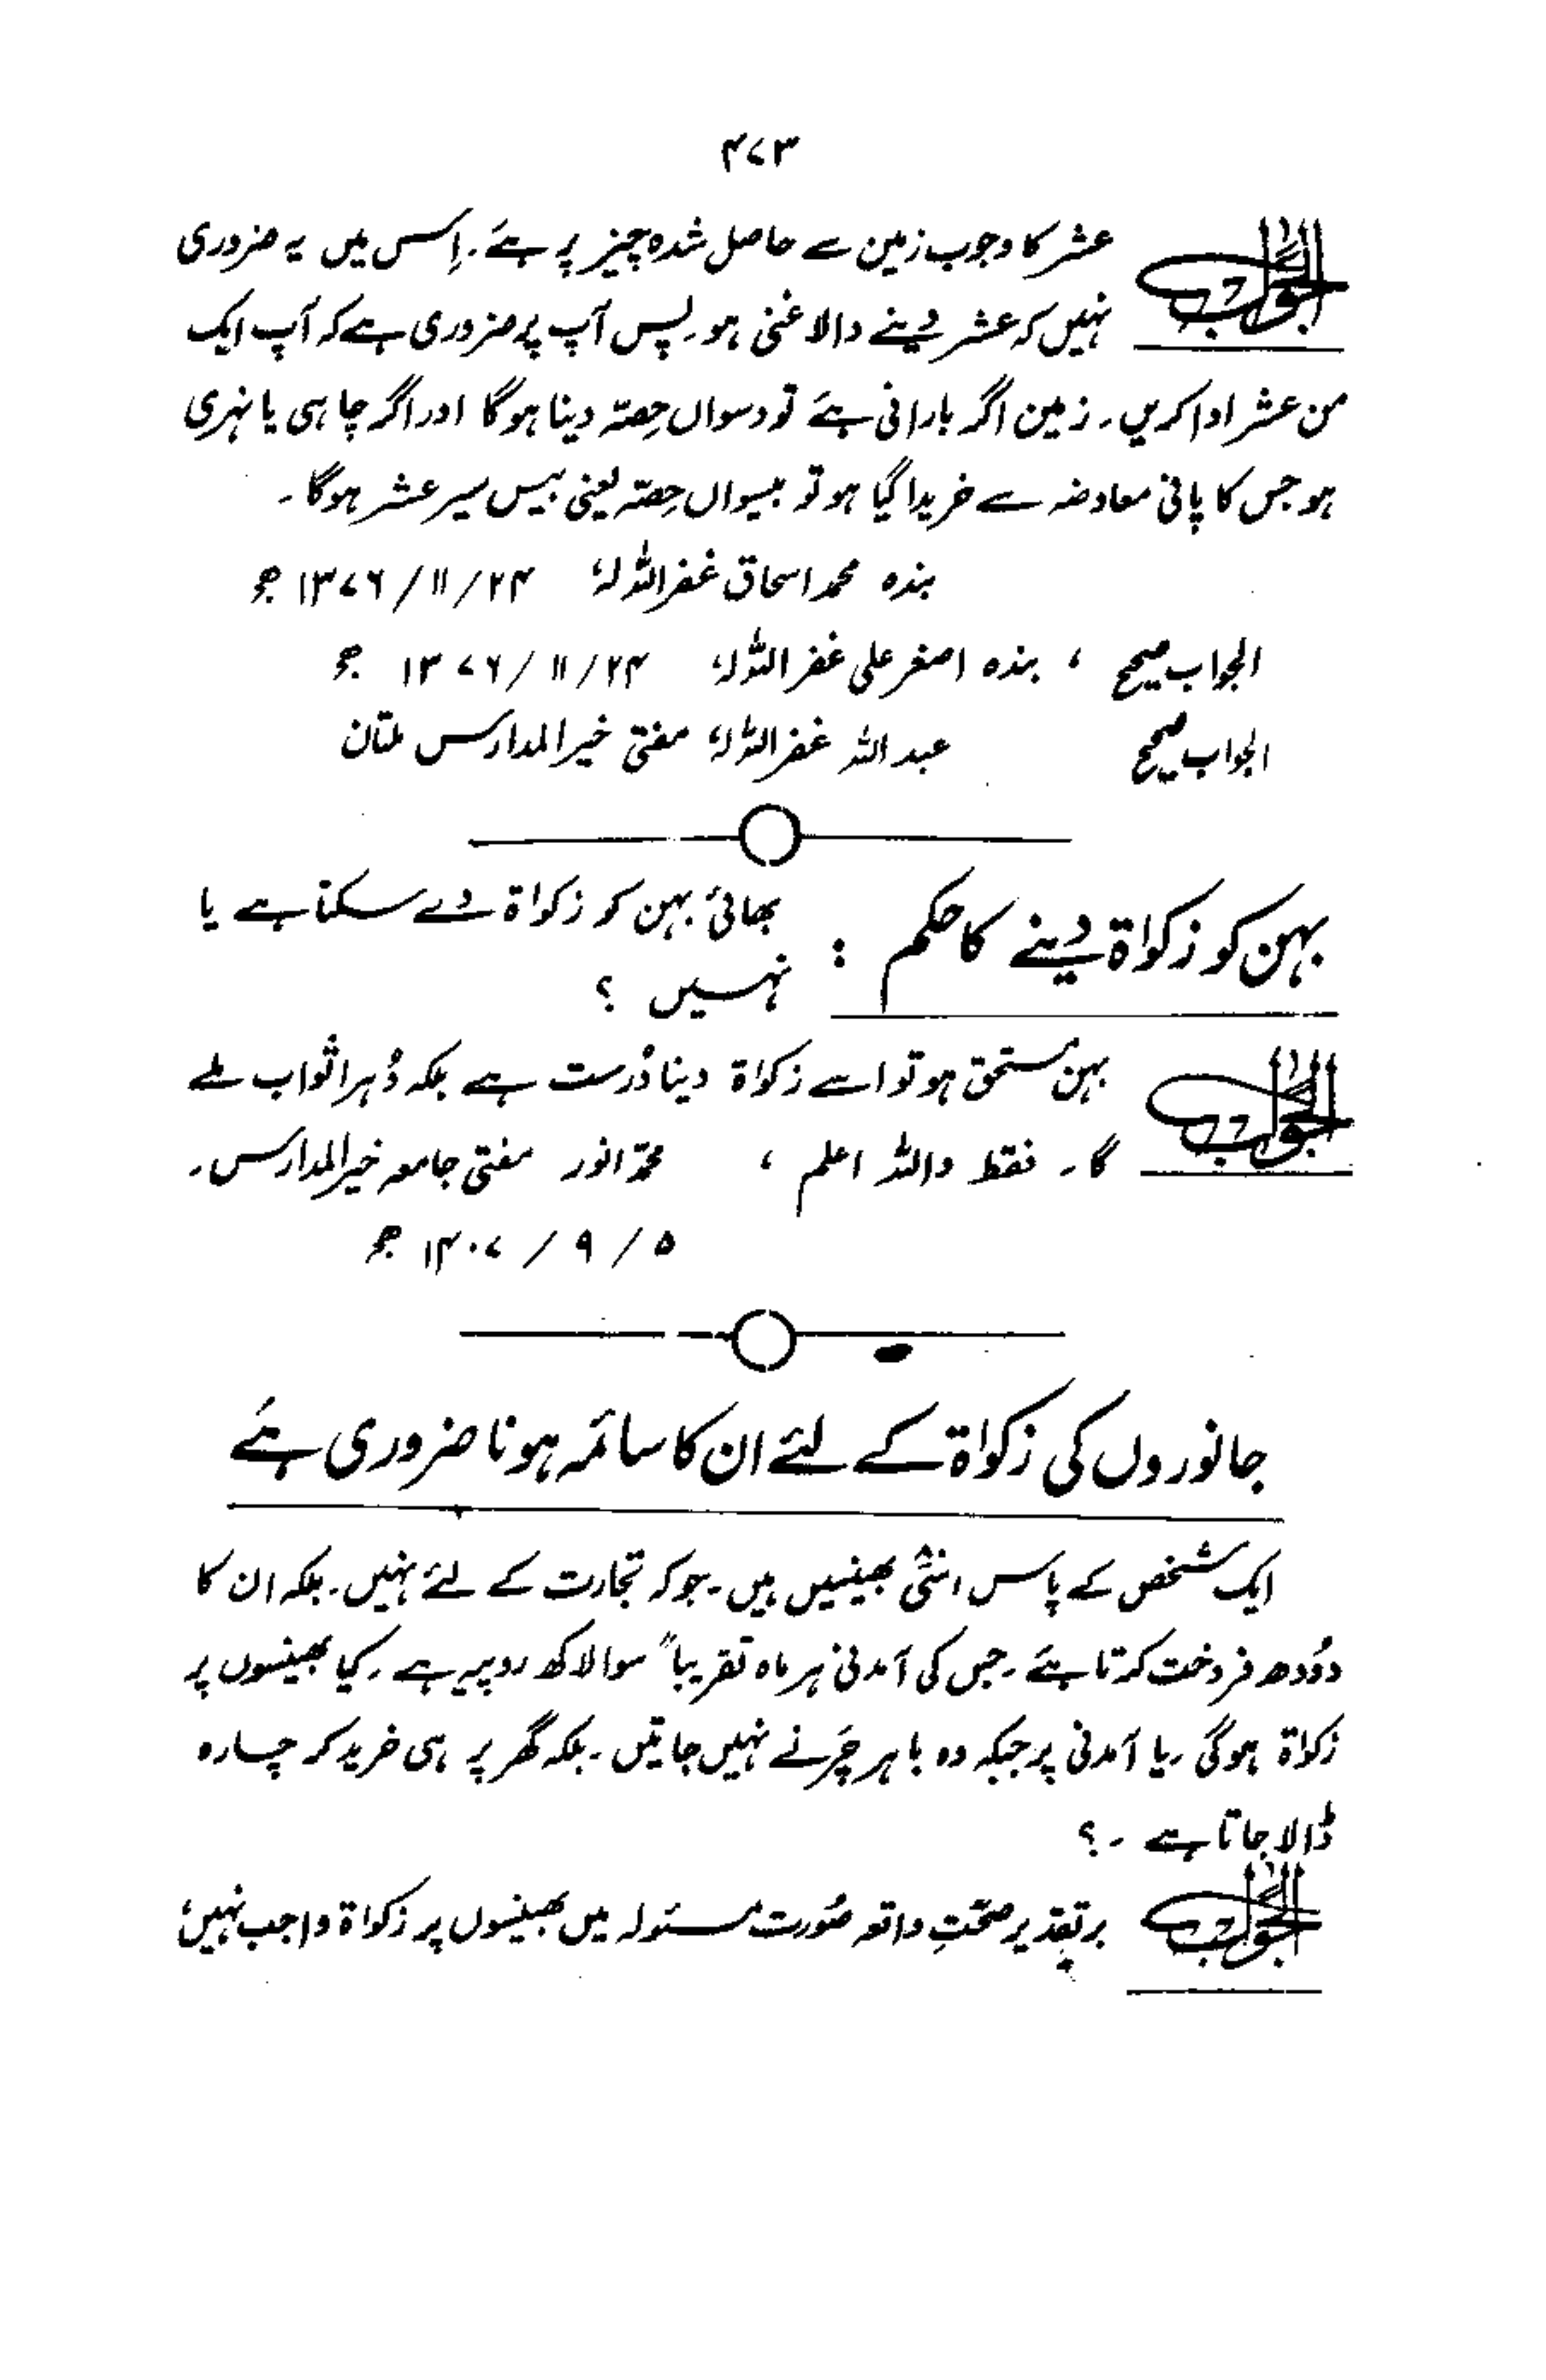 ۴۷۳
الجواب عشر کا وجوب زمین سے حاصل شدہ چیز پر ہے۔ اِس میں یہ ضروری
نہیں کہ عشر دینے والا غنی ہو۔ پس آپ پر ضروری ہے کہ آپ ایک
من عشر ادا کریں۔ زمین اگر بارانی ہے تو دسواں حِصّہ دینا ہوگا اور اگر چاہی یا نہری
ہو جس کا پانی معاوضہ سے خریدا گیا ہو تو بیسواں حِصّہ یعنی بیس سیر عشر ہوگا۔
بندہ محمد اسحاق غفر اللہ لہٗ ۲۴/۱۱/۱۳۷۶ ھ
الجواب صحیح ، بندہ اصغر علی غفر اللہ لہٗ ۲۴/۱۱/۱۳۷۶ ھ
الجواب صحیح عبد اللہ غفر اللہ لہٗ مفتی خیر المدارس ملتان
بہن کو زکواۃ دینے کا حکم : بھائی بہن کو زکواۃ دے سکتا ہے یا
نہیں ؟
الجواب بہن مستحق ہو تو اسے زکواۃ دینا دُرست ہے بلکہ دُہرا ثواب ملے
گا۔ فقط واللہ اعلم ، محمّد انور مفتی جامعہ خیر المدارس۔
۵/۹/۱۴۰۷ ھ
جانوروں کی زکواۃ کے لئے ان کا سائمہ ہونا ضروری ہے
ایک شخص کے پاس انسّی بھینسیں ہیں۔ جو کہ تجارت کے لئے نہیں۔ بلکہ ان کا
دُودھ فروخت کرتا ہے۔ جس کی آمدنی ہر ماہ تقریباً سوا لاکھ روپیہ ہے۔ کیا بھینسوں پر
زکواۃ ہوگی۔ یا آمدنی پر جبکہ وہ باہر چَرنے نہیں جاتیں۔ بلکہ گھر پر ہی خرید کر چارہ
ڈالا جاتا ہے۔ ؟
الجواب بر تقدیر صحّتِ واقعہ صُورت مسئولہ میں بھینسوں پر زکواۃ واجب نہیں